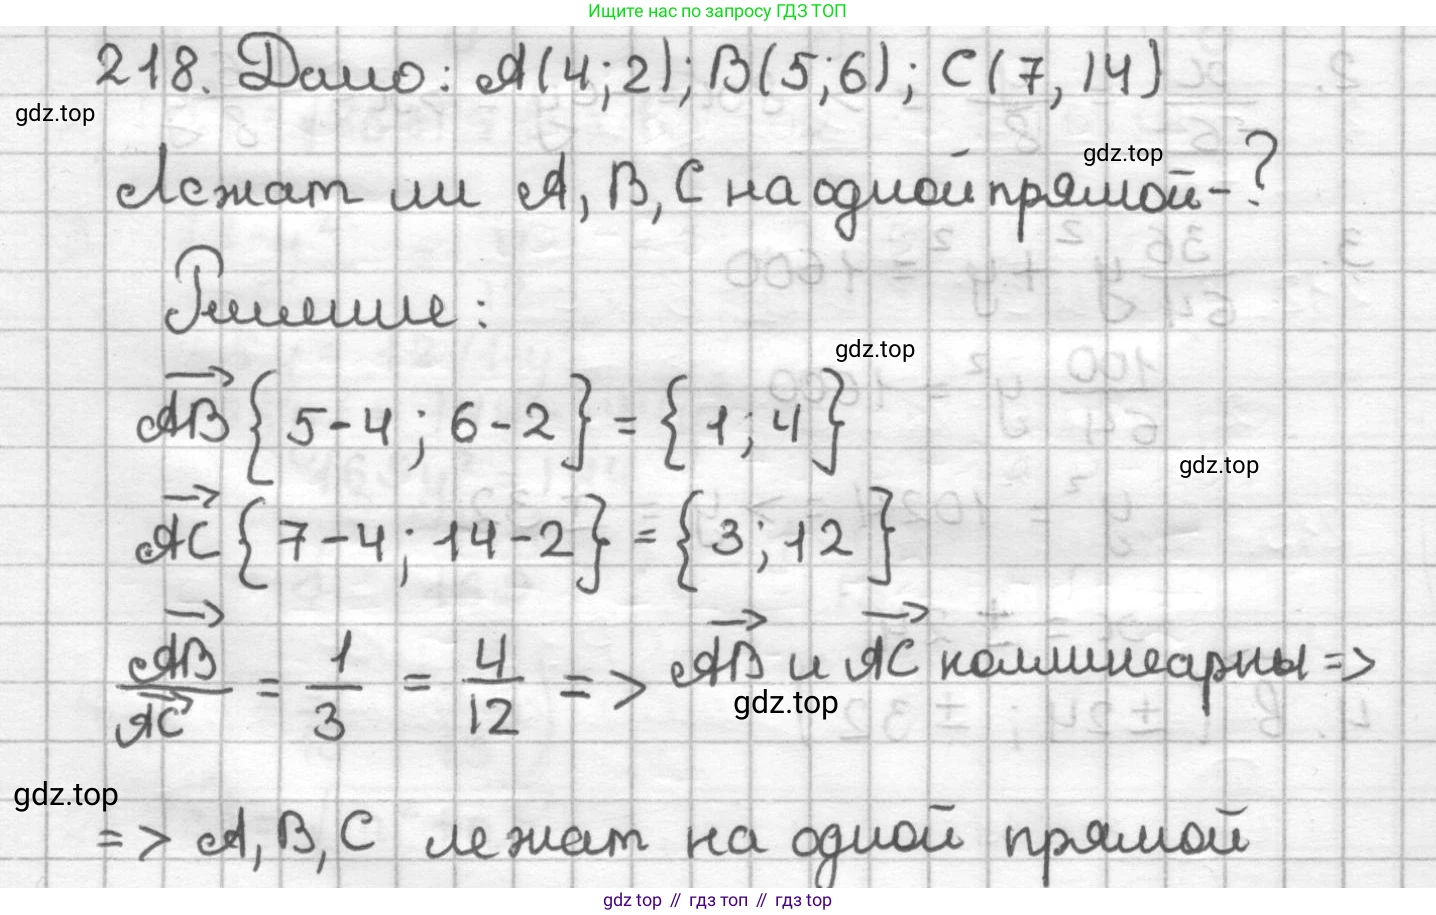 Ищите нас по запросу ГДЗ ТОП
218. Дано: A(4;2); B(5;6); C(7,14)
gdz.top
gdz.top
Лежат ли A, B, C на одной прямой-?
Решение:
gdz.top
AB{5-4; 6-2} = {1; 4}
gdz.top
AC{7-4; 14-2} = {3; 12}
AB/AC = 1/3 = 4/12 => AB и AC коллинеарны =>
gdz.top
gdz.top
=> A, B, C лежат на одной прямой
gdz top // гдз топ // гдз top